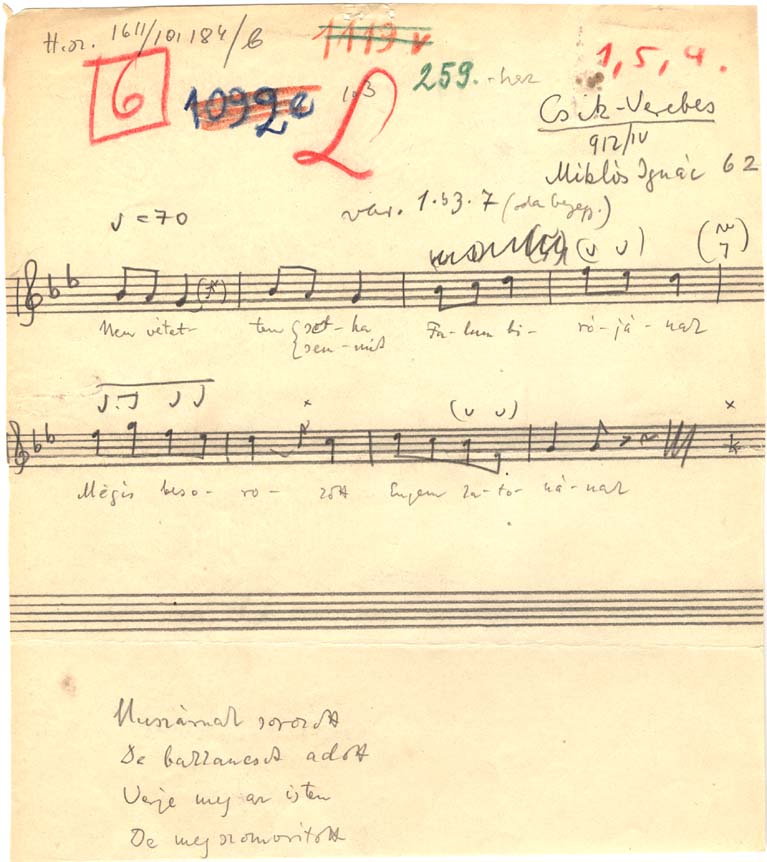 H.sz. 1611/101,184/b
1119 v
1, 5, 4.
6
1099 e
1.3
L
259. -hez
Csik-Verebes
912/IV
Miklós Ignác 62
♩ = 70
var. 1.53.7
Nem vétet-tem {sot-ha Fa-lum bi-ró-já-nak
{sem-mit
Mégis beso-ro-zott Engem ka-to-ná-nak
Huszárnak sorozott
De bakkancsot adott
Verje meg az isten
De megszomoritott